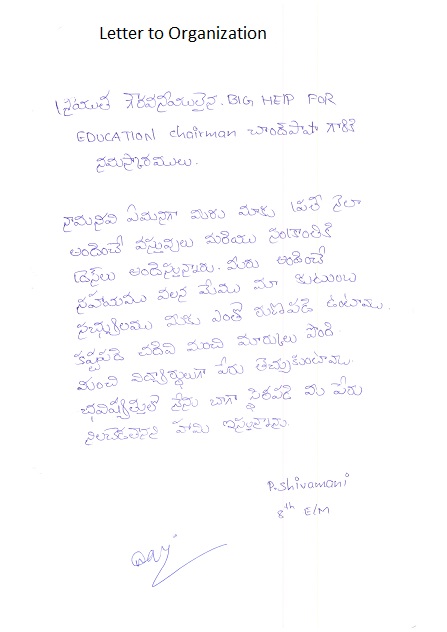 Letter to Organization
శ్రీయుత గౌరవనీయులైన. BIG HELP FOR
EDUCATION chairman చాంద్‌పాషా గారికి
నమస్కారములు.
నామనవి ఏమనగా మీరు మాకు ప్రతి నెలా
అందించే వస్తువులు మరియు సంక్రాంతికి
డ్రెస్‌లు అందిస్తున్నారు. మీరు అందించే
సహయము వలన మేము మా కుటుంబ
సభ్యులము మీకు ఎంతో రుణపడి ఉంటాము.
కష్టపడి చదివి మంచి మార్కులు పొంది
మంచి విద్యార్థులుగా పేరు తెచ్చుకుంటాము.
భవిష్యత్తులో నేను బాగా స్థిరపడి మీ పేరు
నిలబెడతానని హామి ఇస్తున్నాను.
P. Shivamani
8th E/M